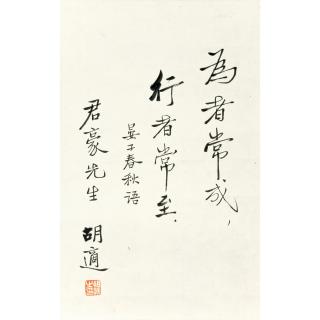 為者常成，
行者常至．
晏子春秋語
君豪先生
胡適